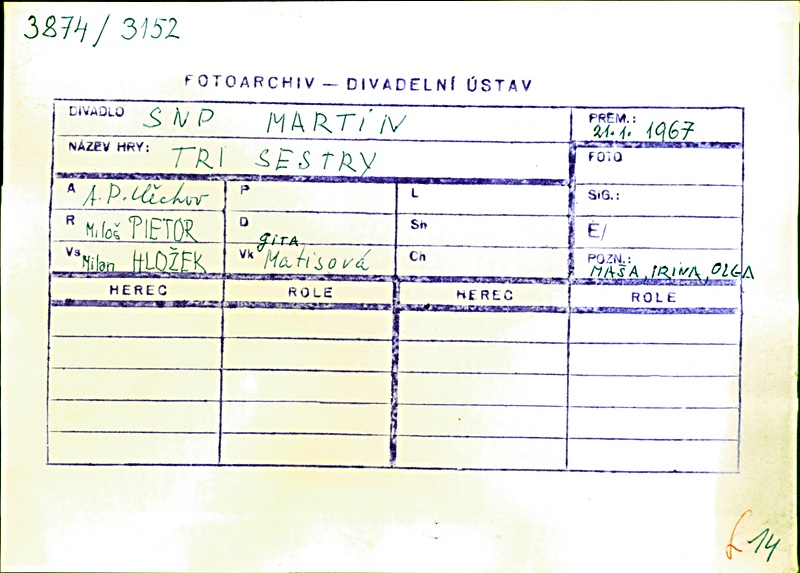 3874 / 3152
FOTOARCHIV — DIVADELNÍ ÚSTAV
DIVADLO SNP MARTIN
PREM.: 21.1. 1967
NÁZEV HRY: TRI SESTRY
FOTO
A A. P. Čěchov
P
L
SIG.:
R Miloš PIETOR
D
Sh
Ё/
Vs Milan HLOŽEK
Vk GITA Matisová
Ch
POZN.: MAŠA, IRINA, OLGA
HEREC ROLE HEREC ROLE
14